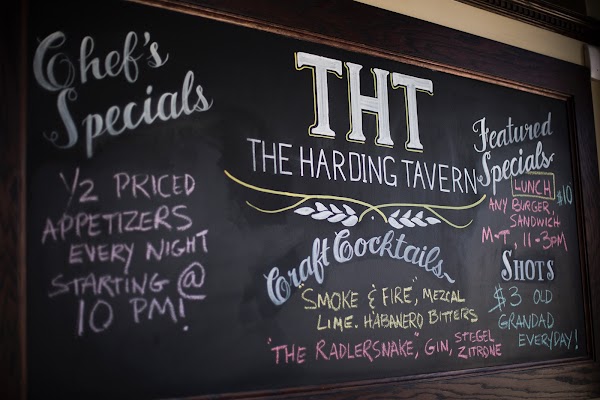 Chef's
Specials
1/2 PRICED
APPETIZERS
EVERY NIGHT
STARTING @
10 PM!
THT
THE HARDING TAVERN
Craft Cocktails
"SMOKE & FIRE", MEZCAL
LIME. HABANERO BITTERS
"THE RADLERSNAKE", GIN, STEGEL
ZITRONE
Featured
Specials
LUNCH $10
ANY BURGER,
SANDWICH
M-T, 11-3PM
SHOTS
$3 OLD
GRANDAD
EVERYDAY!